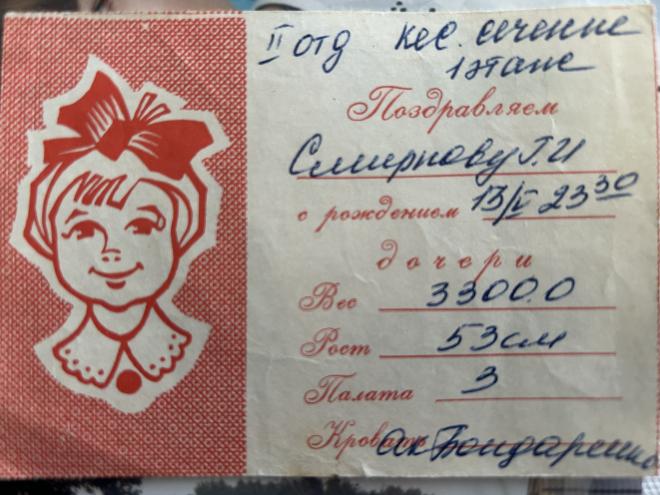 II отд кес. сечение
1 этаж
Поздравляем
Смирнову Г.И
с рождением 13/V 23 30
дочери
Вес 3300.0
Рост 53 см
Палата 3
Кровать Ак Бондаренко